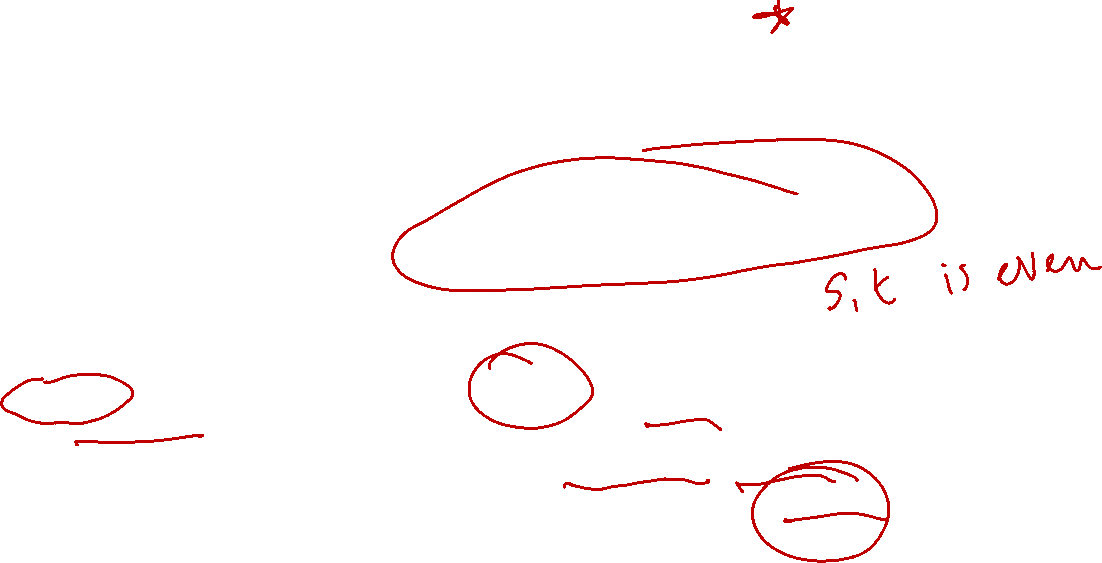 s,t is even